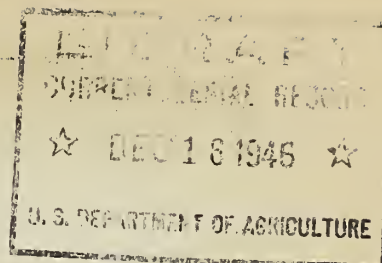 LIBRARY
CURRENT SERIAL RECORD
☆ DEC 18 1946 ☆
U. S. DEPARTMENT OF AGRICULTURE